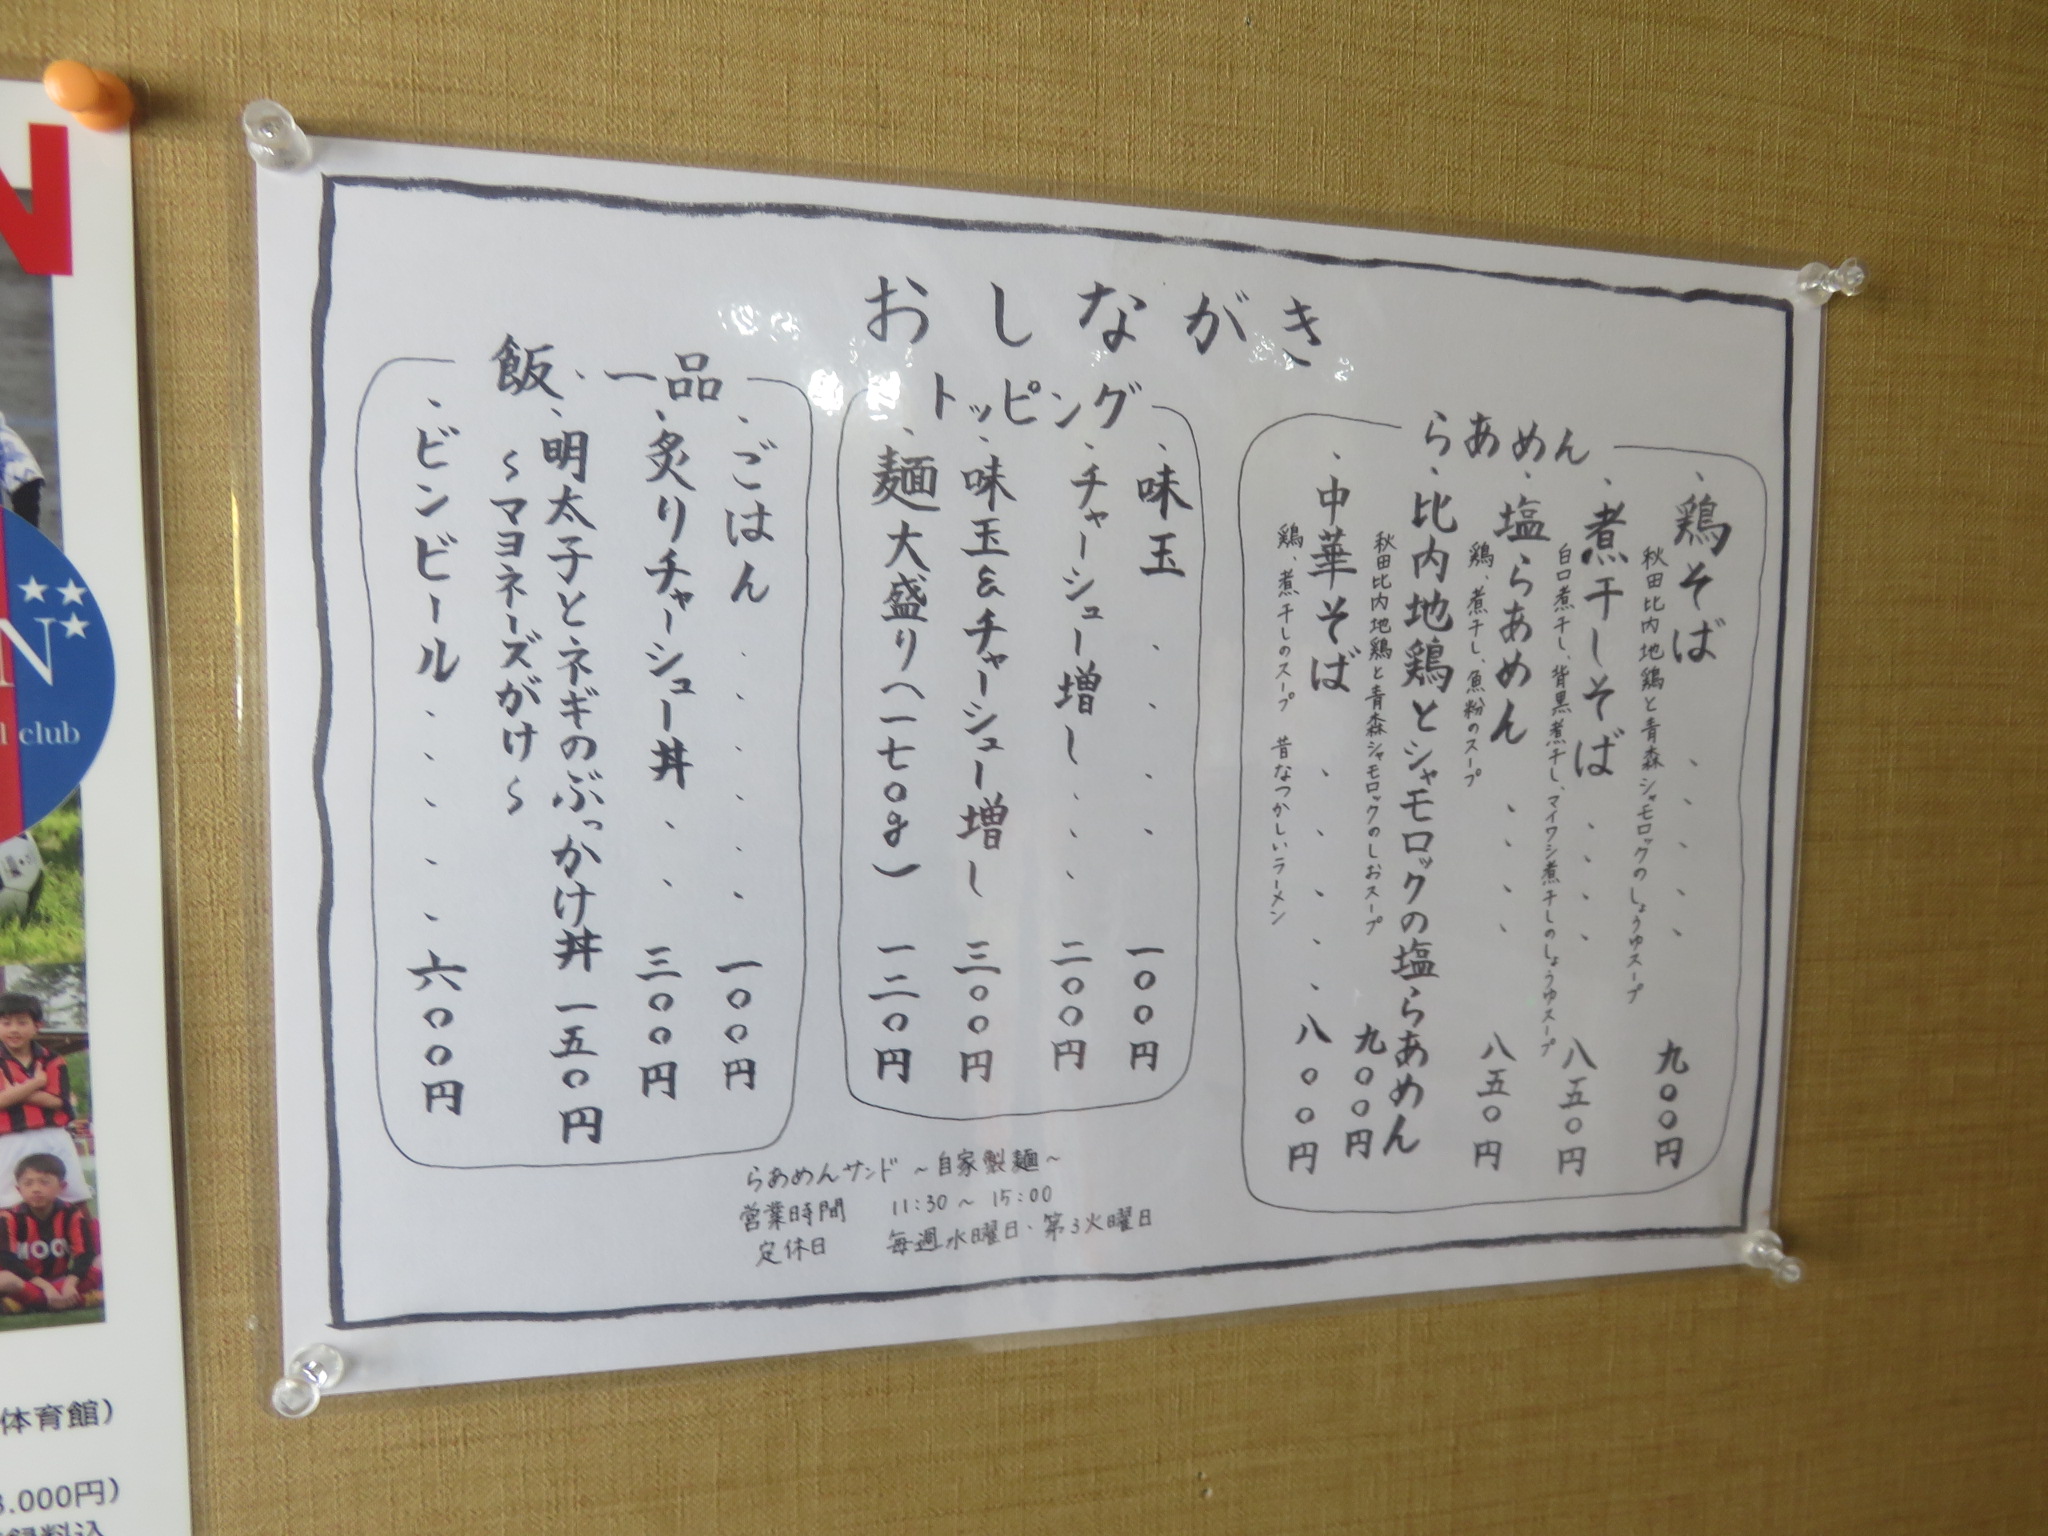 おしながき
らあめん
、鶏そば、、、、九〇〇円
秋田比内地鶏と青森シャモロックのしょうゆスープ
、煮干しそば、、、、八五〇円
白口煮干し、背黒煮干し、マイワシ煮干しのしょうゆスープ
、塩らあめん、、、、八五〇円
鶏、煮干し、魚粉のスープ
、比内地鶏とシャモロックの塩らあめん
九〇〇円
秋田比内地鶏と青森シャモロックのしおスープ
、中華そば、、、、、八〇〇円
鶏、煮干しのスープ 昔なつかしいラーメン
トッピング
、味玉、、、、一〇〇円
、チャーシュー増し、、、二〇〇円
、味玉&チャーシュー増し 三〇〇円
、麺大盛り(一七〇g) 一二〇円
飯・一品
、ごはん、、、、、一〇〇円
、炙りチャーシュー丼、、三〇〇円
、明太子とネギのぶっかけ丼 一五〇円
~マヨネーズがけ~
、ビンビール、、、、、六〇〇円
らあめんサンド ~自家製麺~
営業時間 11:30~15:00
定休日 毎週水曜日・第3火曜日
N
club
MOO
体育館)
3.000円)